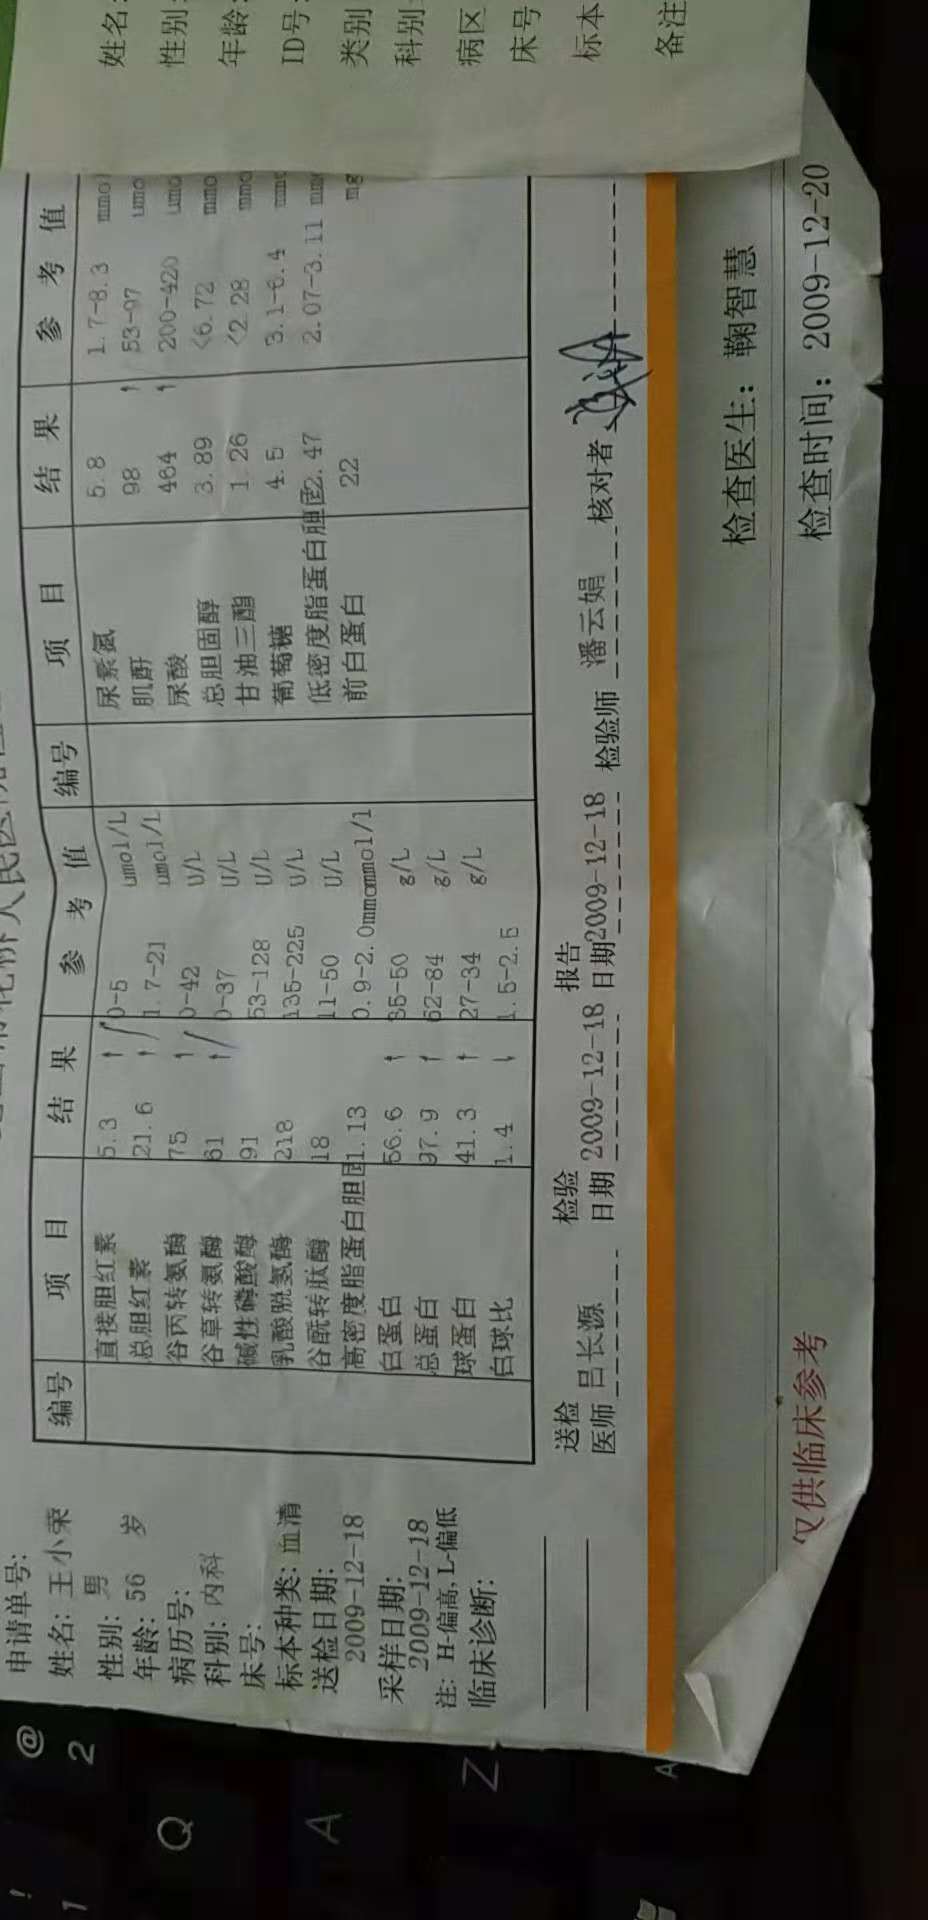 申请单号:
姓名: 王小荣
性别: 男
年龄: 56 岁
病历号:
科别: 内科
床号:
标本种类: 血清
送检日期:
2009-12-18
采样日期:
2009-12-18
注: H-偏高, L-偏低
临床诊断:
编号 项 目 结 果 参 考 值 编号 项 目 结 果 参 考 值
直接胆红素 5.3 ↑ 0-5 umol/L 尿素氮 5.8 1.7-8.3 mmol
总胆红素 21.6 ↑ 1.7-21 umol/L 肌酐 98 ↑ 53-97 umo
谷丙转氨酶 75 ↑ 0-42 U/L 尿酸 464 ↑ 200-420 umo
谷草转氨酶 61 ↑ 0-37 U/L 总胆固醇 3.89 <6.72 mmo
碱性磷酸酶 91 53-128 U/L 甘油三酯 1.26 <2.28 mmo
乳酸脱氢酶 218 135-225 U/L 葡萄糖 4.5 3.1-6.4 mmo
谷酰转肽酶 18 11-50 U/L 低密度脂蛋白胆固 2.47 2.07-3.11 mmo
高密度脂蛋白胆固 1.13 0.9-2.0mmommol/l 前白蛋白 22 mg
白蛋白 56.6 ↑ 35-50 g/L
总蛋白 97.9 ↑ 62-84 g/L
球蛋白 41.3 ↑ 27-34 g/L
白球比 1.4 ↓ 1.5-2.5
送检医师 吕长源 检验日期 2009-12-18 报告日期 2009-12-18 检验师 潘云娟 核对者
仅供临床参考
检查医生: 鞠智慧
检查时间: 2009-12-20
姓名:
性别:
年龄:
ID号:
类别
科别:
病区
床号
标本
备注
! 1
@ 2
Q
A
Z
A